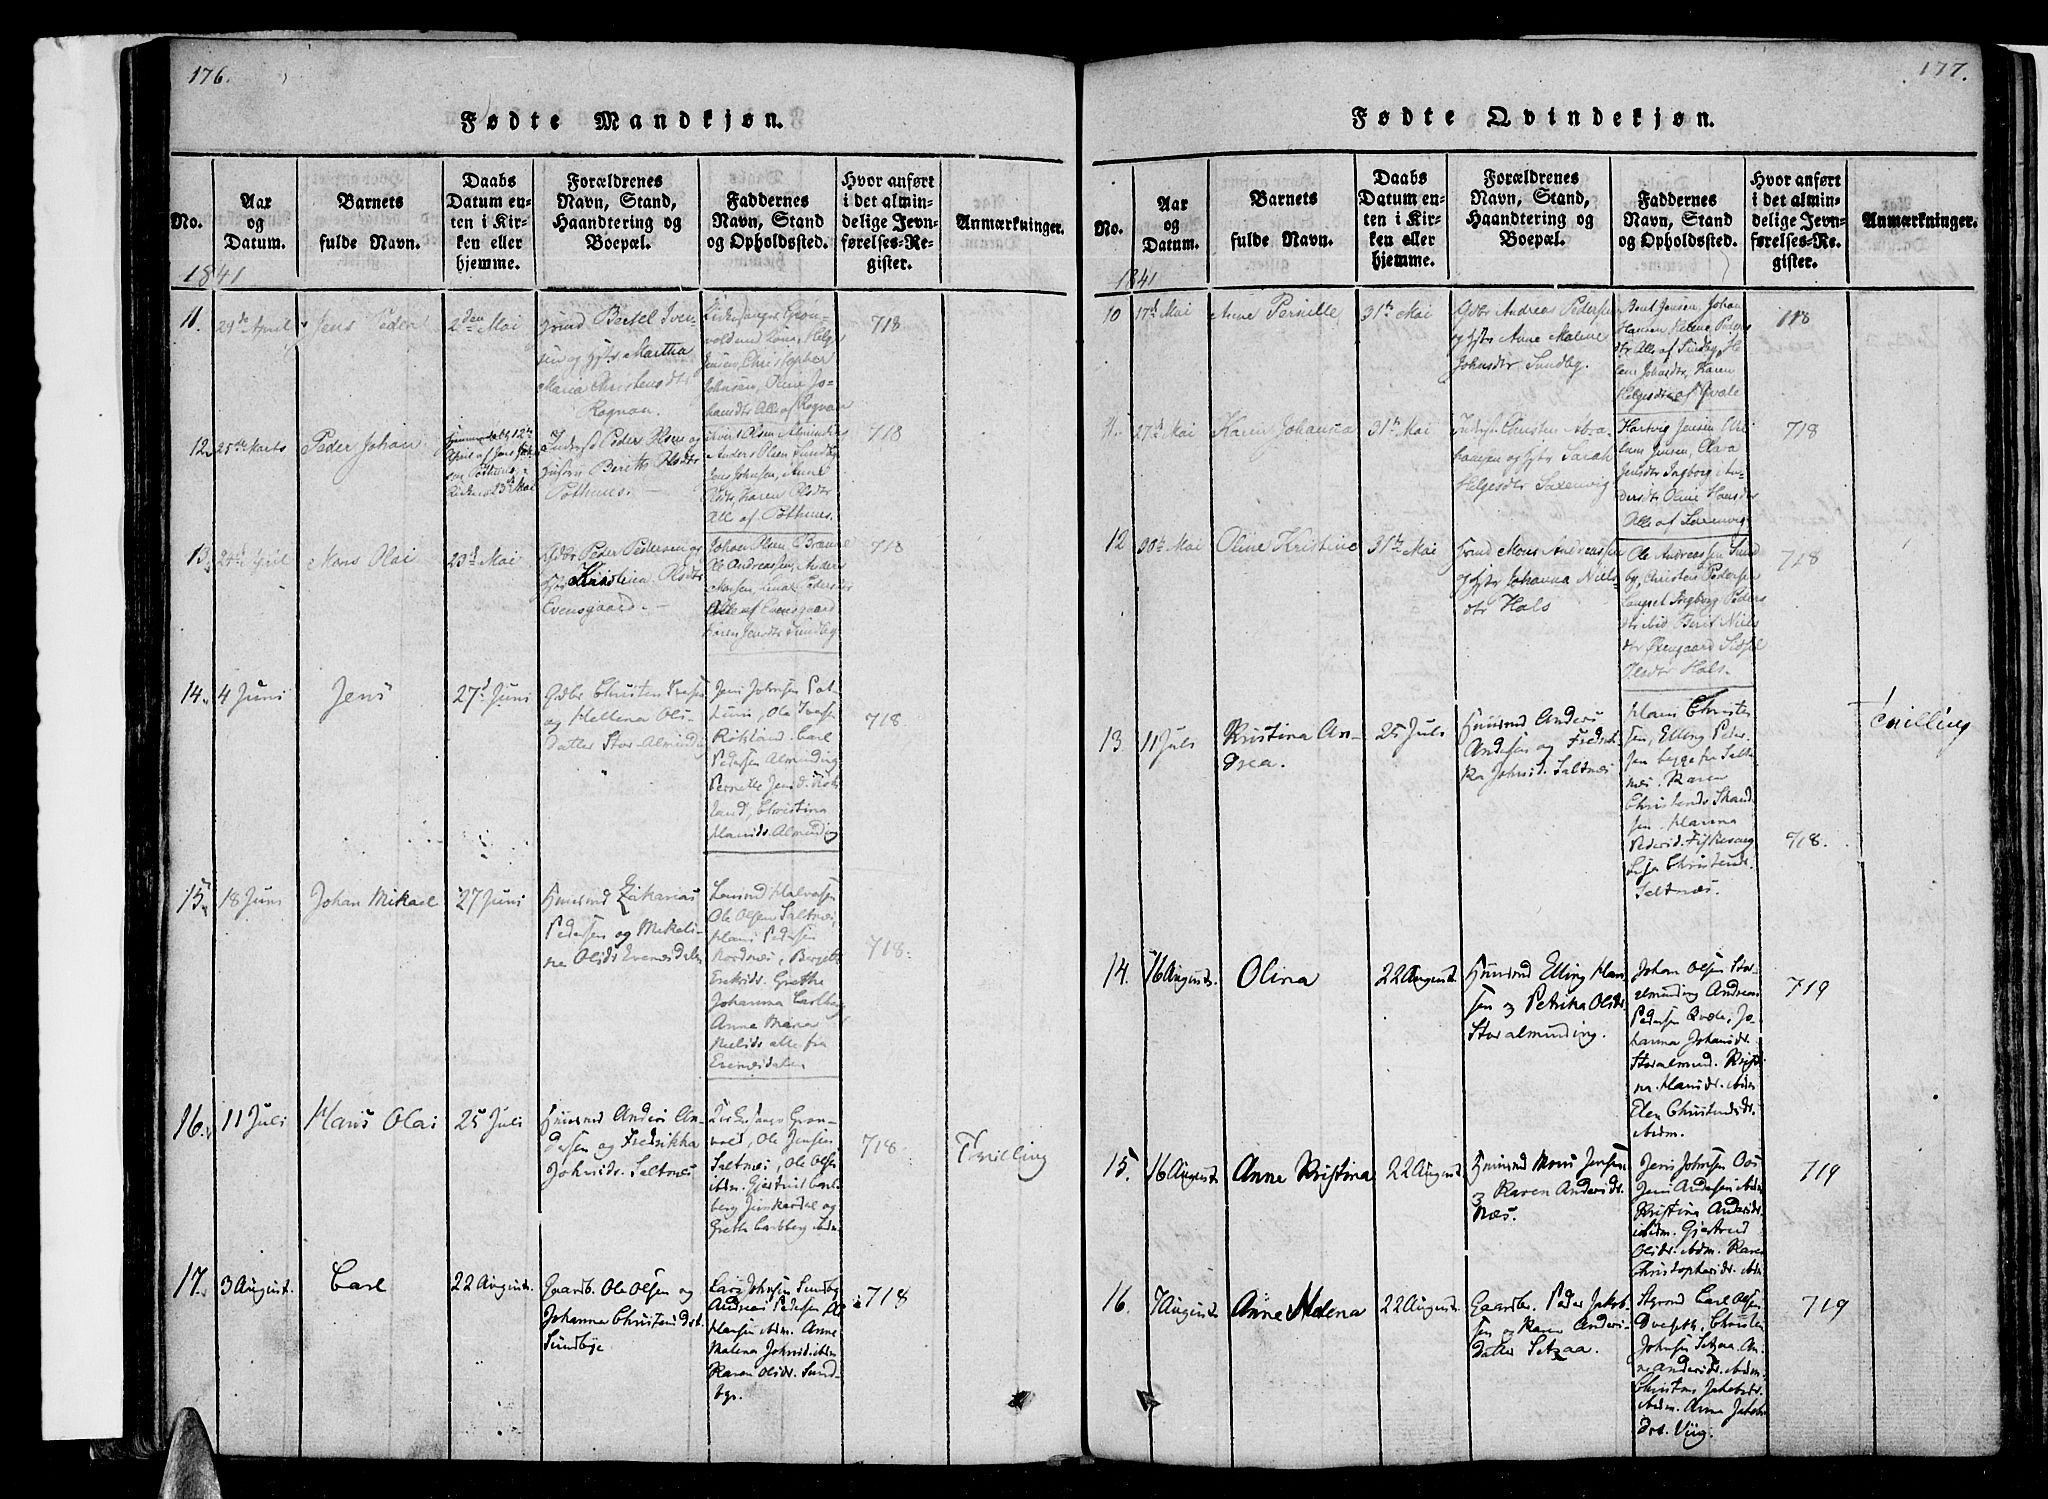 176.
Fødte Mandkjøn.
No.
Aar
og
Datum.
Barnets
fulde Navn.
Daabs
Datum en-
ten i Kir-
ken eller
hjemme.
Forældrenes
Navn, Stand,
Haandtering og
Boepæl.
Faddernes
Navn, Stand
og Opholdssted.
Hvor anført
i det almin-
delige Jevn-
førelses-Re-
gister.
Anmærkninger.
1841
11.
29de April
Jens Peder
2den Mai
Bertel Iver-
sen og Martha
Maria Christensdtr
Rognan.
Kirkesanger Grøn-
vold
Christopher
Johnsen, Oline Jo-
handtr Alle af Rognan
718
12.
25de Marts
Peder Johan
Peder Olsen og
Hustru Berith Olsdtr
Pothuus.
Olsen Alminding
Anders Olsen Sundby
Jens Johnsen, Anne
Olsdtr, Karen Olsdtr
Alle af Pothuus.
718
13.
24de April
Mons Olai
23de Mai
Gdbr Peder Pedersen og
Kirstina Olsdtr
Evensgaard.
Johan Olsen Brænne
Ole Andreassen, Anders
Monsen, Lena Pedersdtr
Alle af Evensgaard
Karen Jensdtr Sundby
718
14.
4 Juni
Jens
27d Juni
Gdbr Christen Iversen
og Hellena Ols-
datter Stor-Alminding
Jens Johnsen Pot-
huus, Ole Iversen
Rökland. Carl
Pedersen Alminding
Pernelle Jensd. Rök-
land, Christina
Hansdr. Alminding
718
15.
18 Juni
Johan Mikael
27 Juni
Huusmd Zakarias
Pedersen og Mikeli-
ne Olsdr Evenesdalen
Leonrd Halvorsen
Ole Olsen Saltnæs,
Hans Pedersen
Nordnæs, Bergette
Eriksdr. Grethe
Johanna Carlberg
Anne Maria
Nielsdr alle fra
Evenesdalen
718.
16.
11 Juli
Hans Olai
25 Juli
Huusmd Anders An-
dersen og Fredrikka
Johnsdr. Saltnæs
Kirkesanger Gron-
vold, Ole Jensen
Saltnæs, Ole Olsen
ibdm. Gjertrud Carl-
berg Junkerdal og
Grethe Carlberg ibdm
718.
Tvilling
17.
3 August.
Carl
22 August.
Gaardb. Ole Olsen og
Johanna Christensdtr.
Sundbye
Lars Johnsen Sundby
Andreas Pedersen
Hansen ibdm. Anne
Malena Johnsd. ibdm
Karen Olsdr. Sund-
bye.
718
177.
Fødte Qvindekjøn.
No.
Aar
og
Datum.
Barnets
fulde Navn.
Daabs
Datum en-
ten i Kir-
ken eller
hjemme.
Forældrenes
Navn, Stand,
Haandtering og
Boepæl.
Faddernes
Navn, Stand
og Opholdssted.
Hvor anført
i det almin-
delige Jevn-
førelses-Re-
gister.
Anmærkninger.
1841
10
17d Mai
Anne Pernille
31te Mai
Gdbr Andreas Pedersen
og Anne Malene
Johnsdtr Sundby.
Bent Jensen, Johan
Hansen, Helene Peders
dtr Alle af Sundby, He
lene Johnsdtr, Karen
Helgesdtr af Qvale
718
11.
27d Mai
Karen Johanna
31te Mai
Inderst Christen Abra-
hamsen og Sarah
Helgesdtr Saxenvig
Hartvig Jensen
Jensen, Clara
Jensdtr Ingborg An-
dersdtr Oline Hansdtr
Alle af Saxenvig
718
12
30te Mai
Oline Kristine
31te Mai
Mons Andreassen
Johanna Niels
dtr Hals
Ole Andreassen Sund
by, Christen Pedersen
Langset Ingborg Peders
dtr ibid Berit Niels
dtr Øxengaard
Olsdtr Hals.
718
13
11 Juli
Kristina An-
drea.
25 Juli
Huusmd Anders
Andersen og Fredrik-
ka Johnsd. Saltnæs
Hans Christen
sen, Elling Peder
sen begge fra Salt
næs. Karen
Christensdr
Hanna
Pedersd. Fiskevaag
Lisa Christensdr.
Saltnæs.
718.
Tvilling
14.
16 August.
Olina
22 August.
Huusmd Elling Han
sen og Petrika Olsdr
Storalmunding.
Johan Olsen Stor-
almunding Andreas
Pedersen Qvæle, Jo-
hanna Johansdr.
Storalmund. Kristi
na Hansdr. ibidm
Elen Christensdr.
ibidm.
719
15.
16 August
Anne Kristina
22 August.
Huusmd Mons Jensen
og Karen Andersdr.
Næs.
Jens Johnsen
Jens Andersen ibdm
Kristina Andersdr.
ibidm. Gjertrud
Olsdr. ibidm. Karen
Christophersdr. ibdm
719
16.
7 August
Anne Malena
22 August.
Gaardbr. Peder Jakob-
sen og Karen Anders-
datter Setzaa.
Styrmd Carl Olsen
Dverseth, Christen
Johnsen Setzaa, An-
ne Andersdr. ibidm.
Christens Jakobsdr.
ibidm. Anne Jakobs
drt. Viig.
719